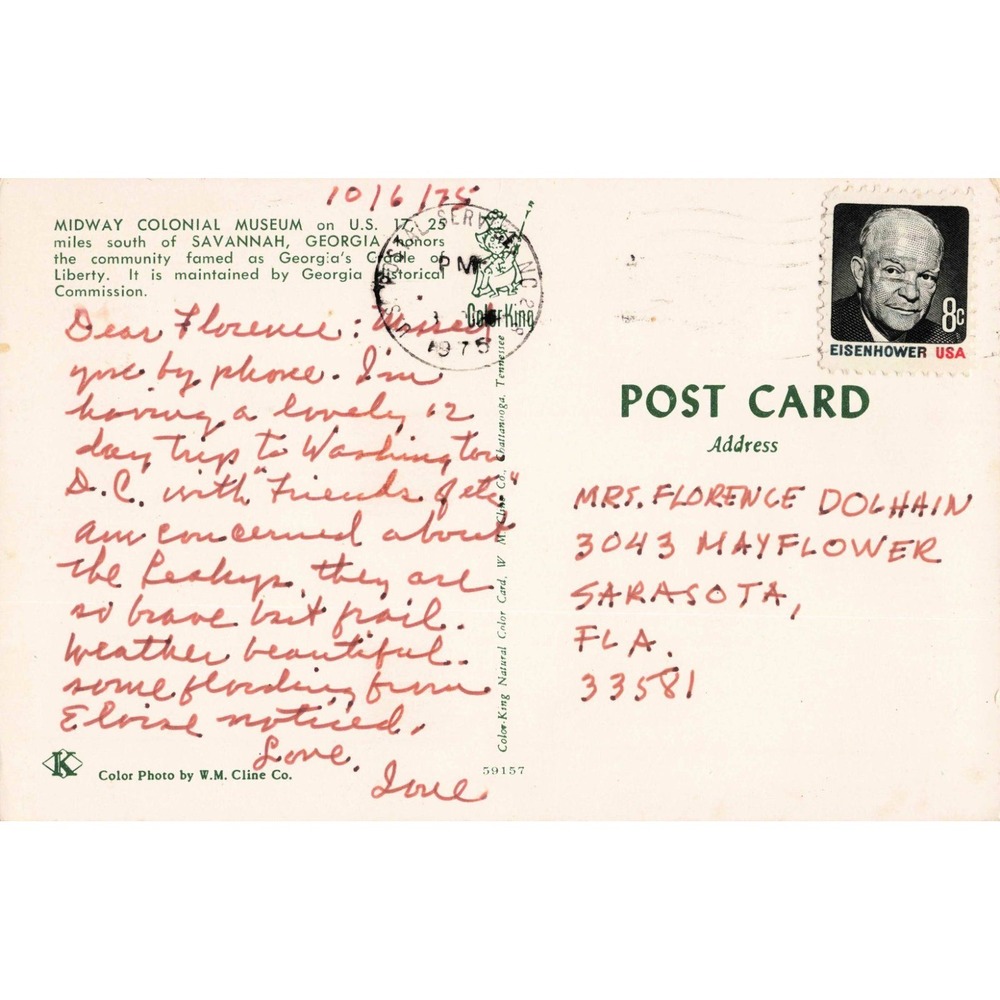 10/6/75
MIDWAY COLONIAL MUSEUM on U.S. 17, 25
miles south of SAVANNAH, GEORGIA honors
the community famed as Georgia's Cradle of
Liberty. It is maintained by Georgia Historical
Commission.
Dear Florence: Missed
you by phone. I'm
having a lovely 12
day trip to Washington
D.C. with "Friends of etc"
am concerned about
the they are
so brave but frail.
Weather beautiful.
some flooding from
Eloise noticed.
Love.
Ione
K
Color Photo by W.M. Cline Co.
U.S. POSTAL SERVICE NC
PM
1975
Color King
Color-King Natural Color Card, W M Cline Co., Chattanooga, Tennessee
59157
EISENHOWER USA
8c
POST CARD
Address
MRS. FLORENCE DOLHAIN
3043 MAYFLOWER
SARASOTA,
FLA.
33581